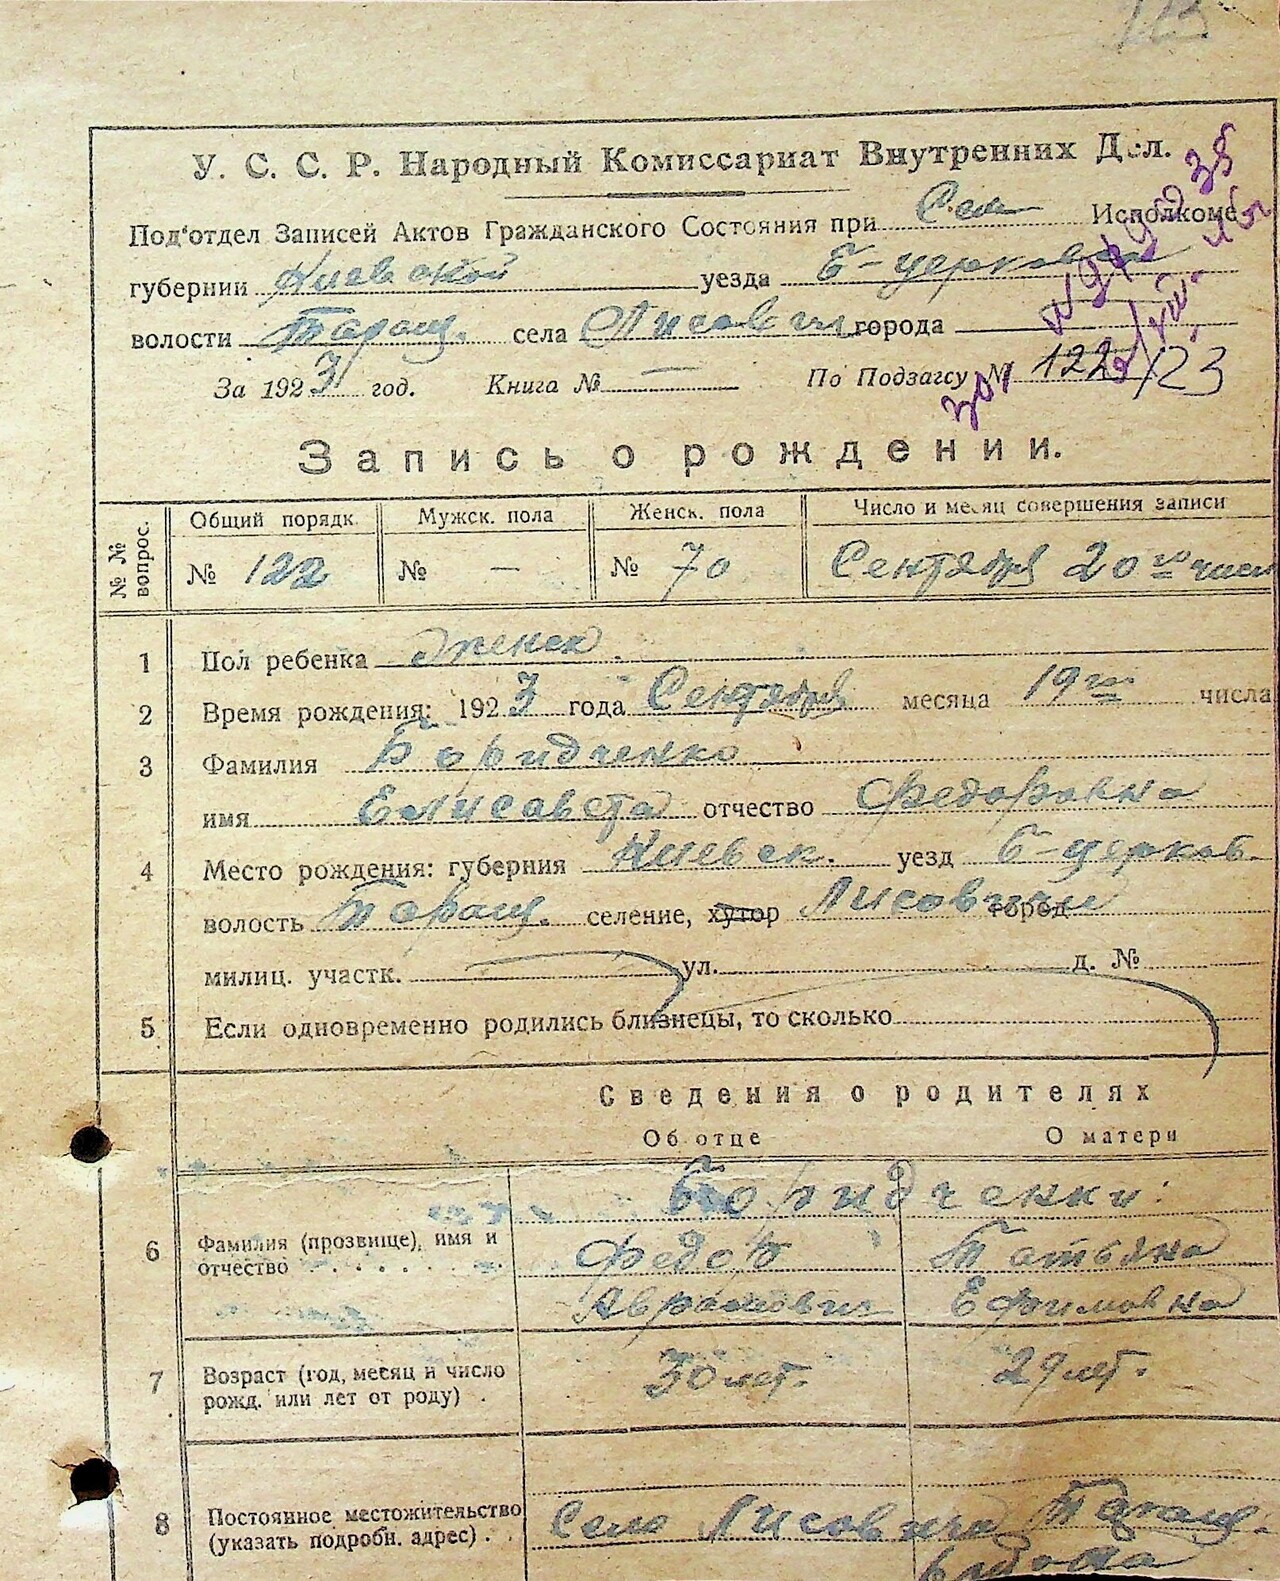 У. С. С. Р. Народный Комиссариат Внутренних Дел.
Под'отдел Записей Актов Гражданского Состояния при Сель Исполкоме
губернии Киевской уезда Б-церковск
волости Таращ. села Лисович города
За 1923 год. Книга № — По Подзагсу № 122/23
Запись о рождении.
№ № вопрос. Общий порядк Мужск. пола Женск. пола Число и месяц совершения записи
№ 122 № — № 70 Сентября 20 го числ
1 Пол ребенка женск.
2 Время рождения: 1923 года Сентября месяца 19 го числа
3 Фамилия Боридченко
имя Елисавета отчество Федоровна
4 Место рождения: губерния Киевск. уезд Б-церков.
волость Таращ. селение, хутор Лисовичи город
милиц. участк. ул. д. №
5 Если одновременно родились близнецы, то сколько
Сведения о родителях
Об отце О матери
Боридченки:
6 Фамилия (прозвище), имя и отчество Федор Татьяна
Аврамович Ефимовна
7 Возраст (год, месяц и число рожд. или лет от роду) . 30 лет. 29 лет.
8 Постоянное местожительство (указать подробн. адрес) . Село Лисовичи Таращ.
района